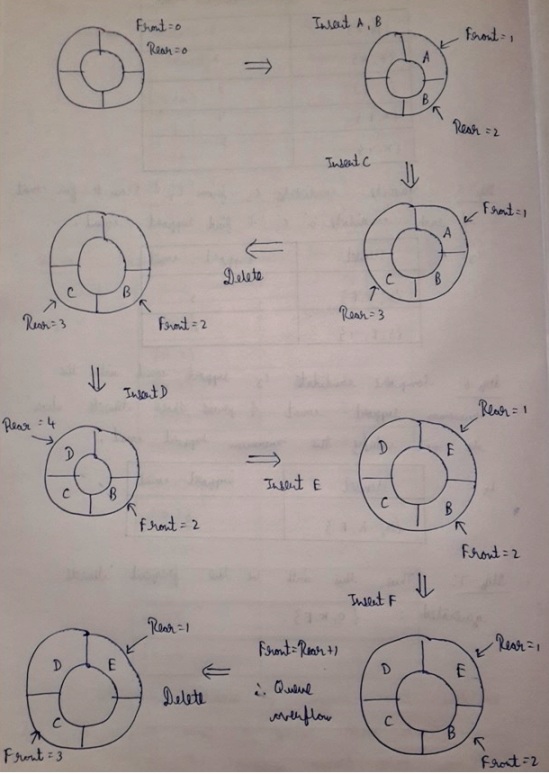 Front=0
Rear=0
Insert A, B
Front=1
A
B
Rear=2
Insert C
Front=1
A
C
B
Rear=3
Delete
C
B
Rear=3
Front=2
Insert D
Rear=4
D
C
B
Front=2
Insert E
Rear=1
D
E
C
B
Front=2
Insert F
Rear=1
D
E
C
B
Front=2
Front=Rear+1
∴ Queue
overflow
Delete
Rear=1
D
E
C
Front=3